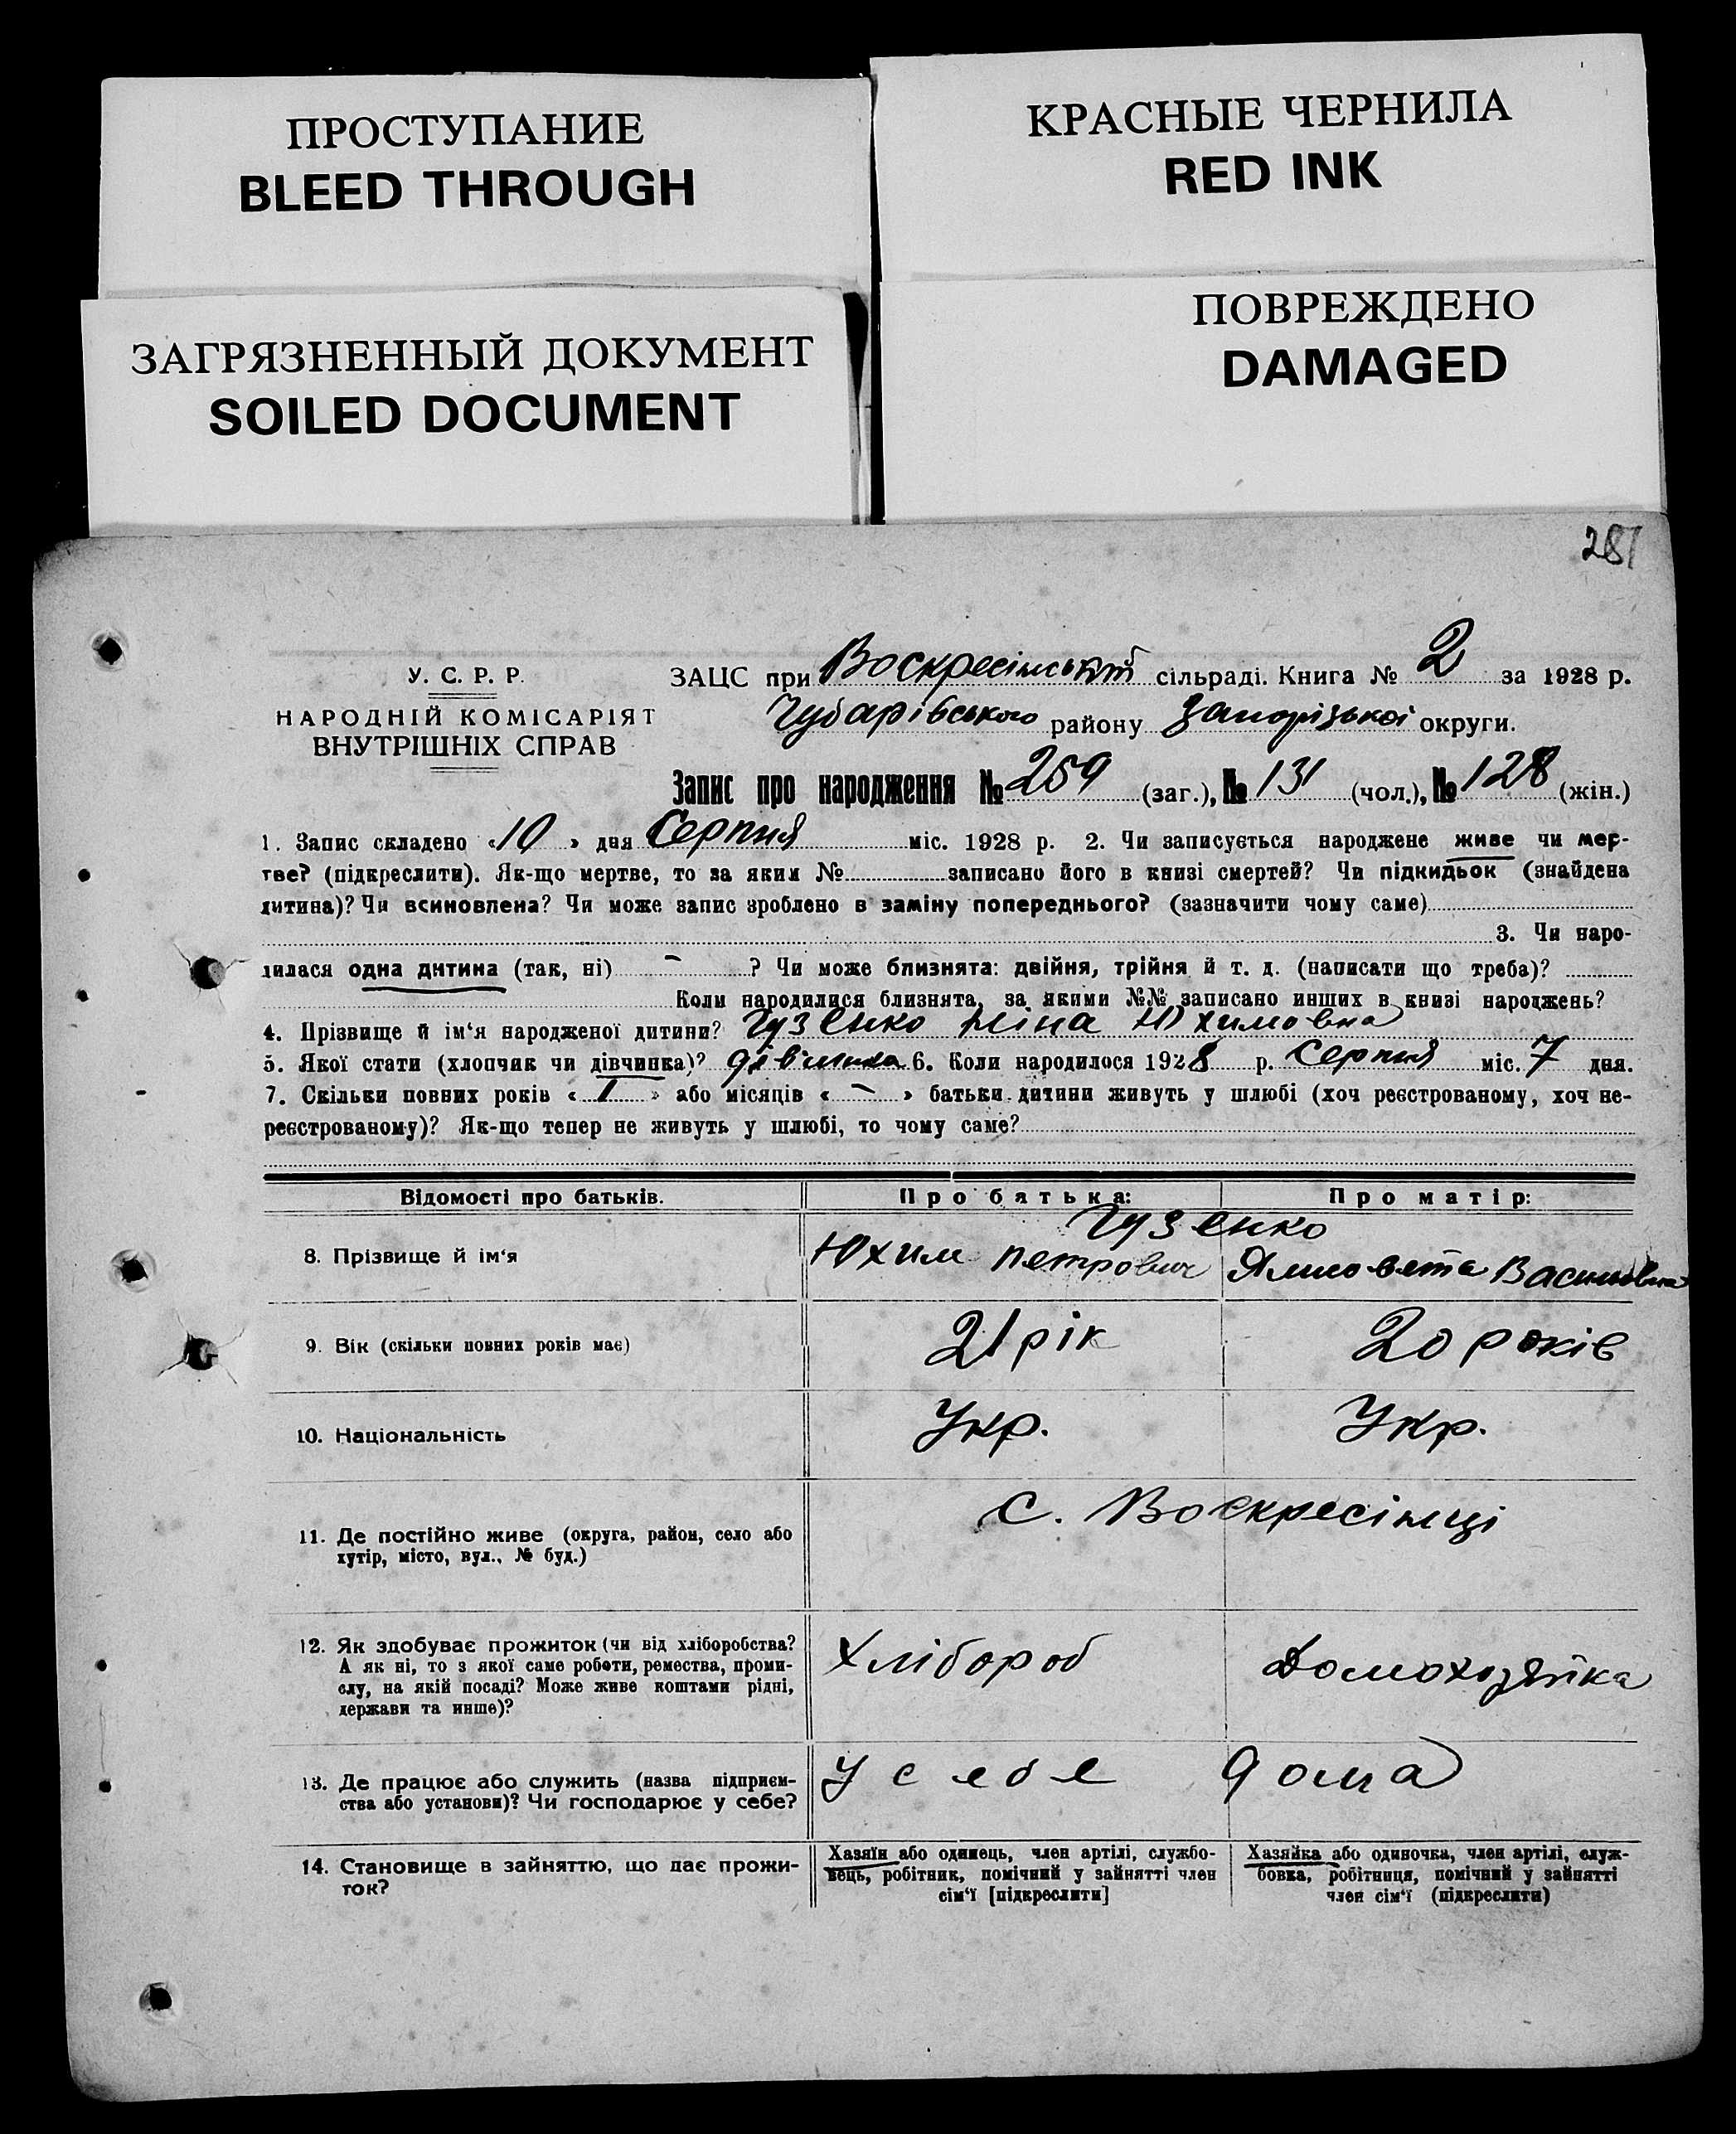 ПРОСТУПАНИЕ
BLEED THROUGH
КРАСНЫЕ ЧЕРНИЛА
RED INK
ЗАГРЯЗНЕННЫЙ ДОКУМЕНТ
SOILED DOCUMENT
ПОВРЕЖДЕНО
DAMAGED
281
У. С. Р. Р.
НАРОДНІЙ КОМІСАРІЯТ
ВНУТРІШНІХ СПРАВ
ЗАЦС при Воскресінській сільраді. Книга № 2 за 1928 р.
Чубарівського району Запорізької округи.
Запис про народження № 259 (заг.), № 131 (чол.), № 128 (жін.)
1. Запис складено «10» дня Серпня міс. 1928 р. 2. Чи записується народжене живе чи мер-
тве? (підкреслити). Як-що мертве, то за яким № записано його в книзі смертей? Чи підкидьок (знайдена
дитина)? Чи всиновлена? Чи може запис зроблено в заміну попереднього? (зазначити чому саме)
3. Чи наро-
дилася одна дитина (так, ні) – ? Чи може близнята: двійня, трійня й т. д. (написати що треба)?
Коли народилися близнята, за якими №№ записано инших в книзі народжень?
4. Прізвище й ім‘я народженої дитини? Гузенко Ніна Юхимовна
5. Якої стати (хлопчик чи дівчинка)? дівчинка 6. Коли народилося 1928 р. Серпня міс. 7 дня.
7. Скільки повних років «1» або місяців « – » батьки дитини живуть у шлюбі (хоч реєстрованому, хоч не-
реєстрованому)? Як-що тепер не живуть у шлюбі, то чому саме?
Відомості про батьків. Про батька: Про матір:
Гузенко
8. Прізвище й ім‘я Юхим Петрович Ялисовета Василівна
9. Вік (скільки повних років має) 21 рік 20 років
10. Національність Укр. Укр.
с. Воскресінці
11. Де постійно живе (округа, район, село або
хутір, місто, вул., № буд.)
12. Як здобуває прожиток (чи від хліборобства? Хлібороб Домохозяйка
А як ні, то з якої саме роботи, ремества, проми-
слу, на якій посаді? Може живе коштами рідні,
держави та инше)?
13. Де працює або служить (назва підприєм- У себе дома
ства або установи)? Чи господарює у себе?
14. Становище в зайняттю, що дає прожи-
ток?
Хазяїн або одинець, член артілі, службо-
вець, робітник, помічний у зайнятті член
сім‘ї [підкреслити]
Хазяйка або одиночка, член артілі, служ-
бовка, робітниця, помічний у зайнятті
член сім‘ї (підкреслити)